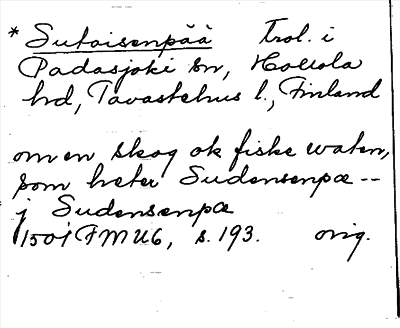 * Sutaisenpää Trol. i
Padasjoki sn, Hollola
hrd, Tavastehus l., Finland
om en skog ok fiske waten,
som heter Sudensenpæ --
j Sudensenpæ
1501 FMU6, s. 193. orig.